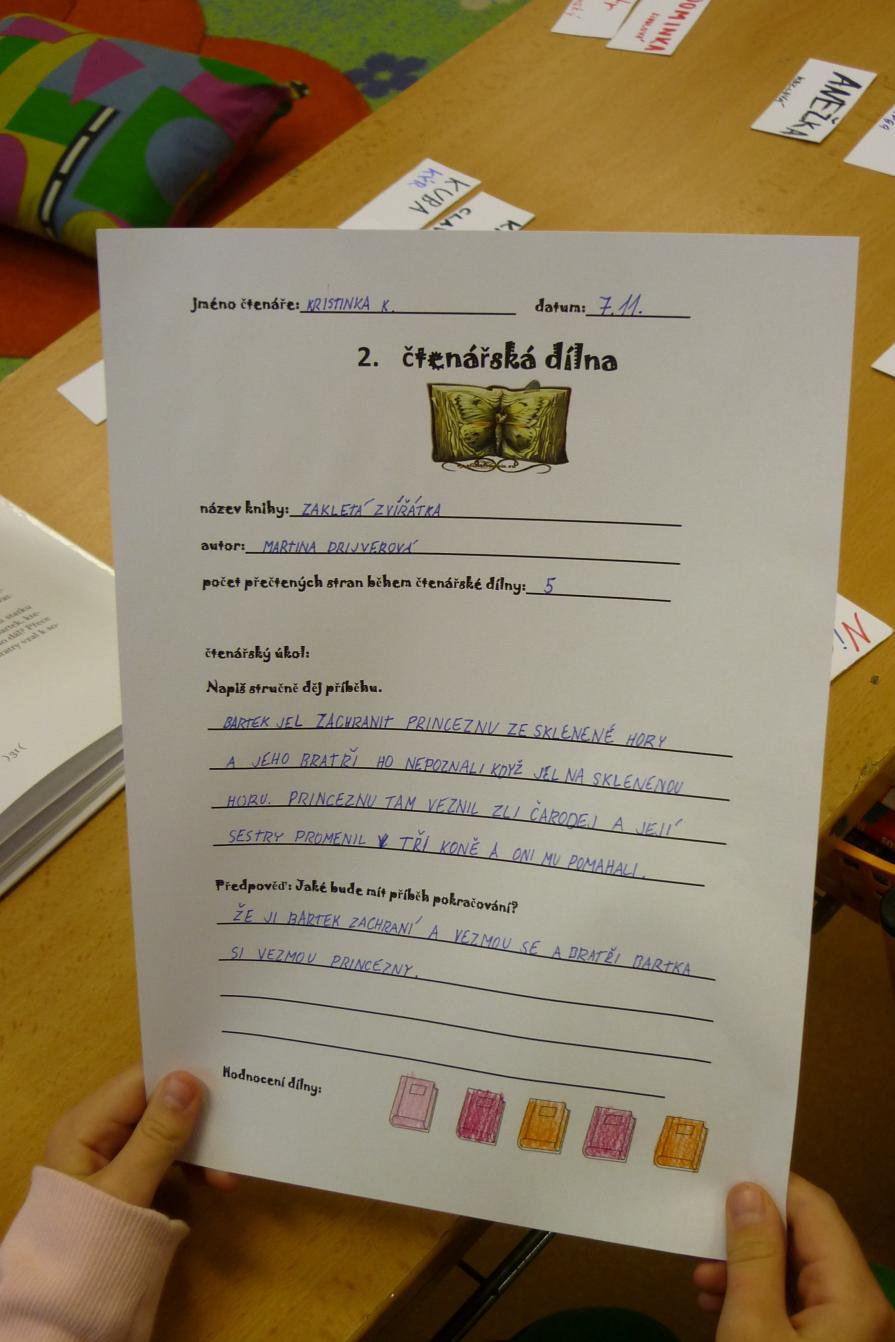 DOMINKA
ANEŽKA
KUBA
KÝR
Jméno čtenáře: KRISTINKA K. datum: 7.11.
2. čtenářská dílna
název knihy: ZAKLETÁ ZVÍŘÁTKA
autor: MARTINA DRIJVEROVÁ
počet přečtených stran během čtenářské dílny: 5
čtenářský úkol:
Napiš stručně děj příběhu.
BARTEK JEL ZACHRANIT PRINCEZNU ZE SKLENENÉ HORY
A JEHO BRATŘI HO NEPOZNALI KDYŽ JEL NA SKLENENOU
HORU. PRINCEZNU TAM VEZNIL ZLI ČARODEJ A JEJÍ
SESTRY PROMENIL V TŘÍ KONĚ A ONI MU POMAHALI.
Předpověď: Jaké bude mít příběh pokračování?
ŽE JI BARTEK ZACHRANÍ A VEZMOU SE A BRATŘI BARTKA
SI VEZMOU PRINCEZNY.
Hodnocení dílny: